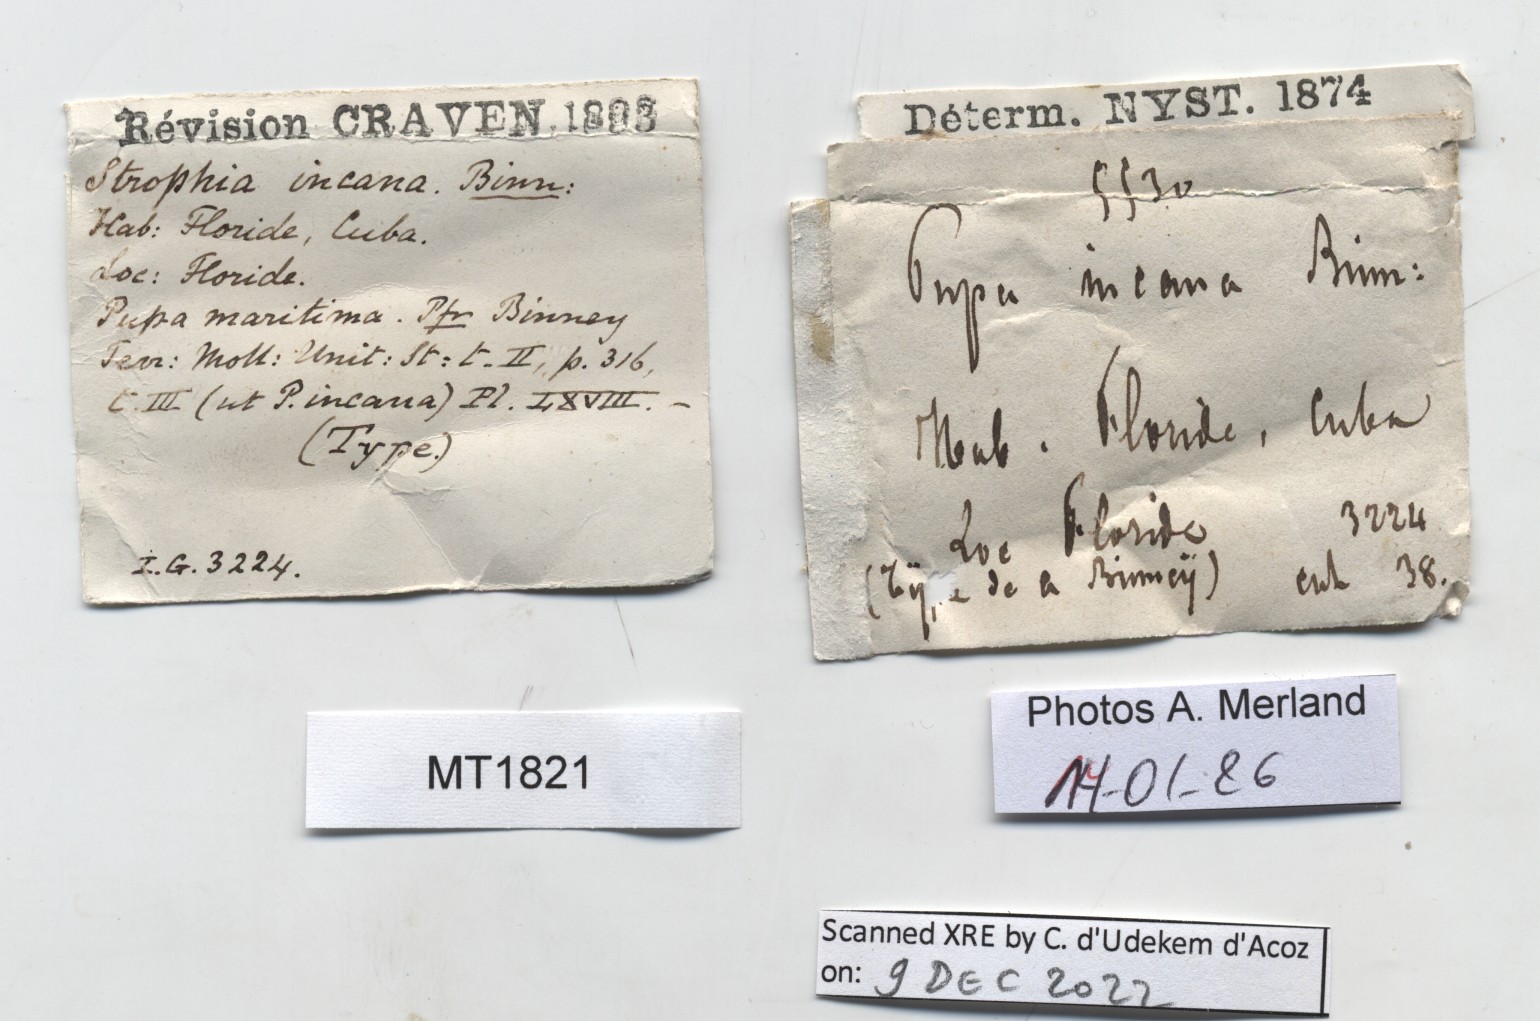 Révision CRAVEN. 1893
Strophia incana. Binn:
Hab: Floride, Cuba.
Loc: Floride.
Pupa maritima. Pfr Binney
Terr: Moll: Unit: St: t. II, p. 316,
t. III (ut P. incana) Pl. LXVIII. -
(Type.)
I.G. 3224.
Déterm. NYST. 1874
5530
Pupa incana Binn:
Hab. Floride, Cuba
Loc Floride 3224
(Tÿpe de Binneÿ) 38.
MT1821
Photos A. Merland
14-01-26
Scanned XRE by C. d'Udekem d'Acoz
on: 9 DEC 2022